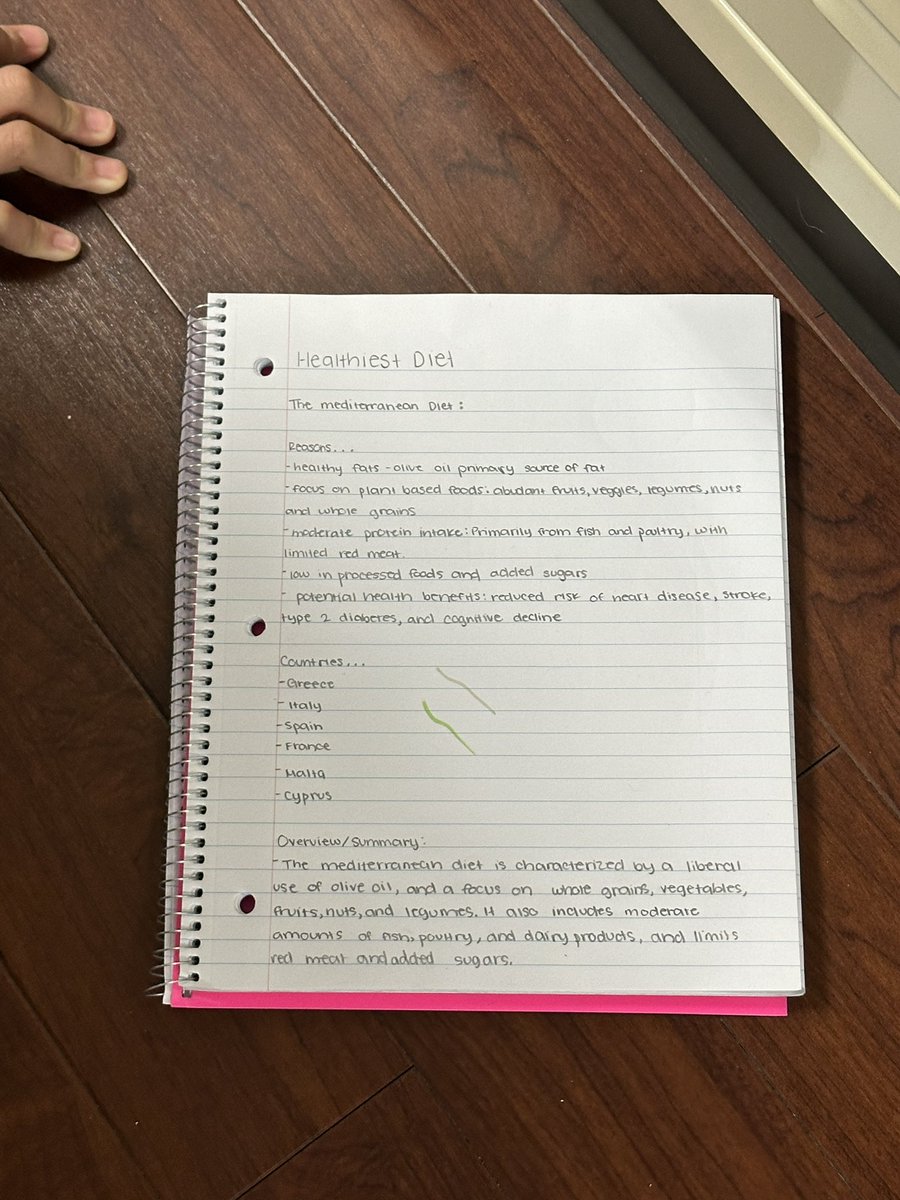 Healthiest Diet
The mediterranean Diet:
Reasons...
-healthy fats -olive oil primary source of fat
-focus on plant based foods: abudant fruits, veggies, legumes, nuts
and whole grains
-moderate protein intake: Primarily from fish and paultry, with
limited red meat.
-low in processed foods and added sugars
- potential health benefits: reduced risk of heart disease, stroke,
type 2 diaberes, and cognitive decline
Countries...
-Greece
-Italy
-Spain
-France
-Malta
-Cyprus
Overview/Summary:
-The mediterranean diet is characterized by a liberal
use of olive oil, and a focus on whole grains, vegetables,
fruits, nuts, and legumes. It also includes moderate
amounts of fish, poultry, and dairy products, and limits
red meat and added sugars.